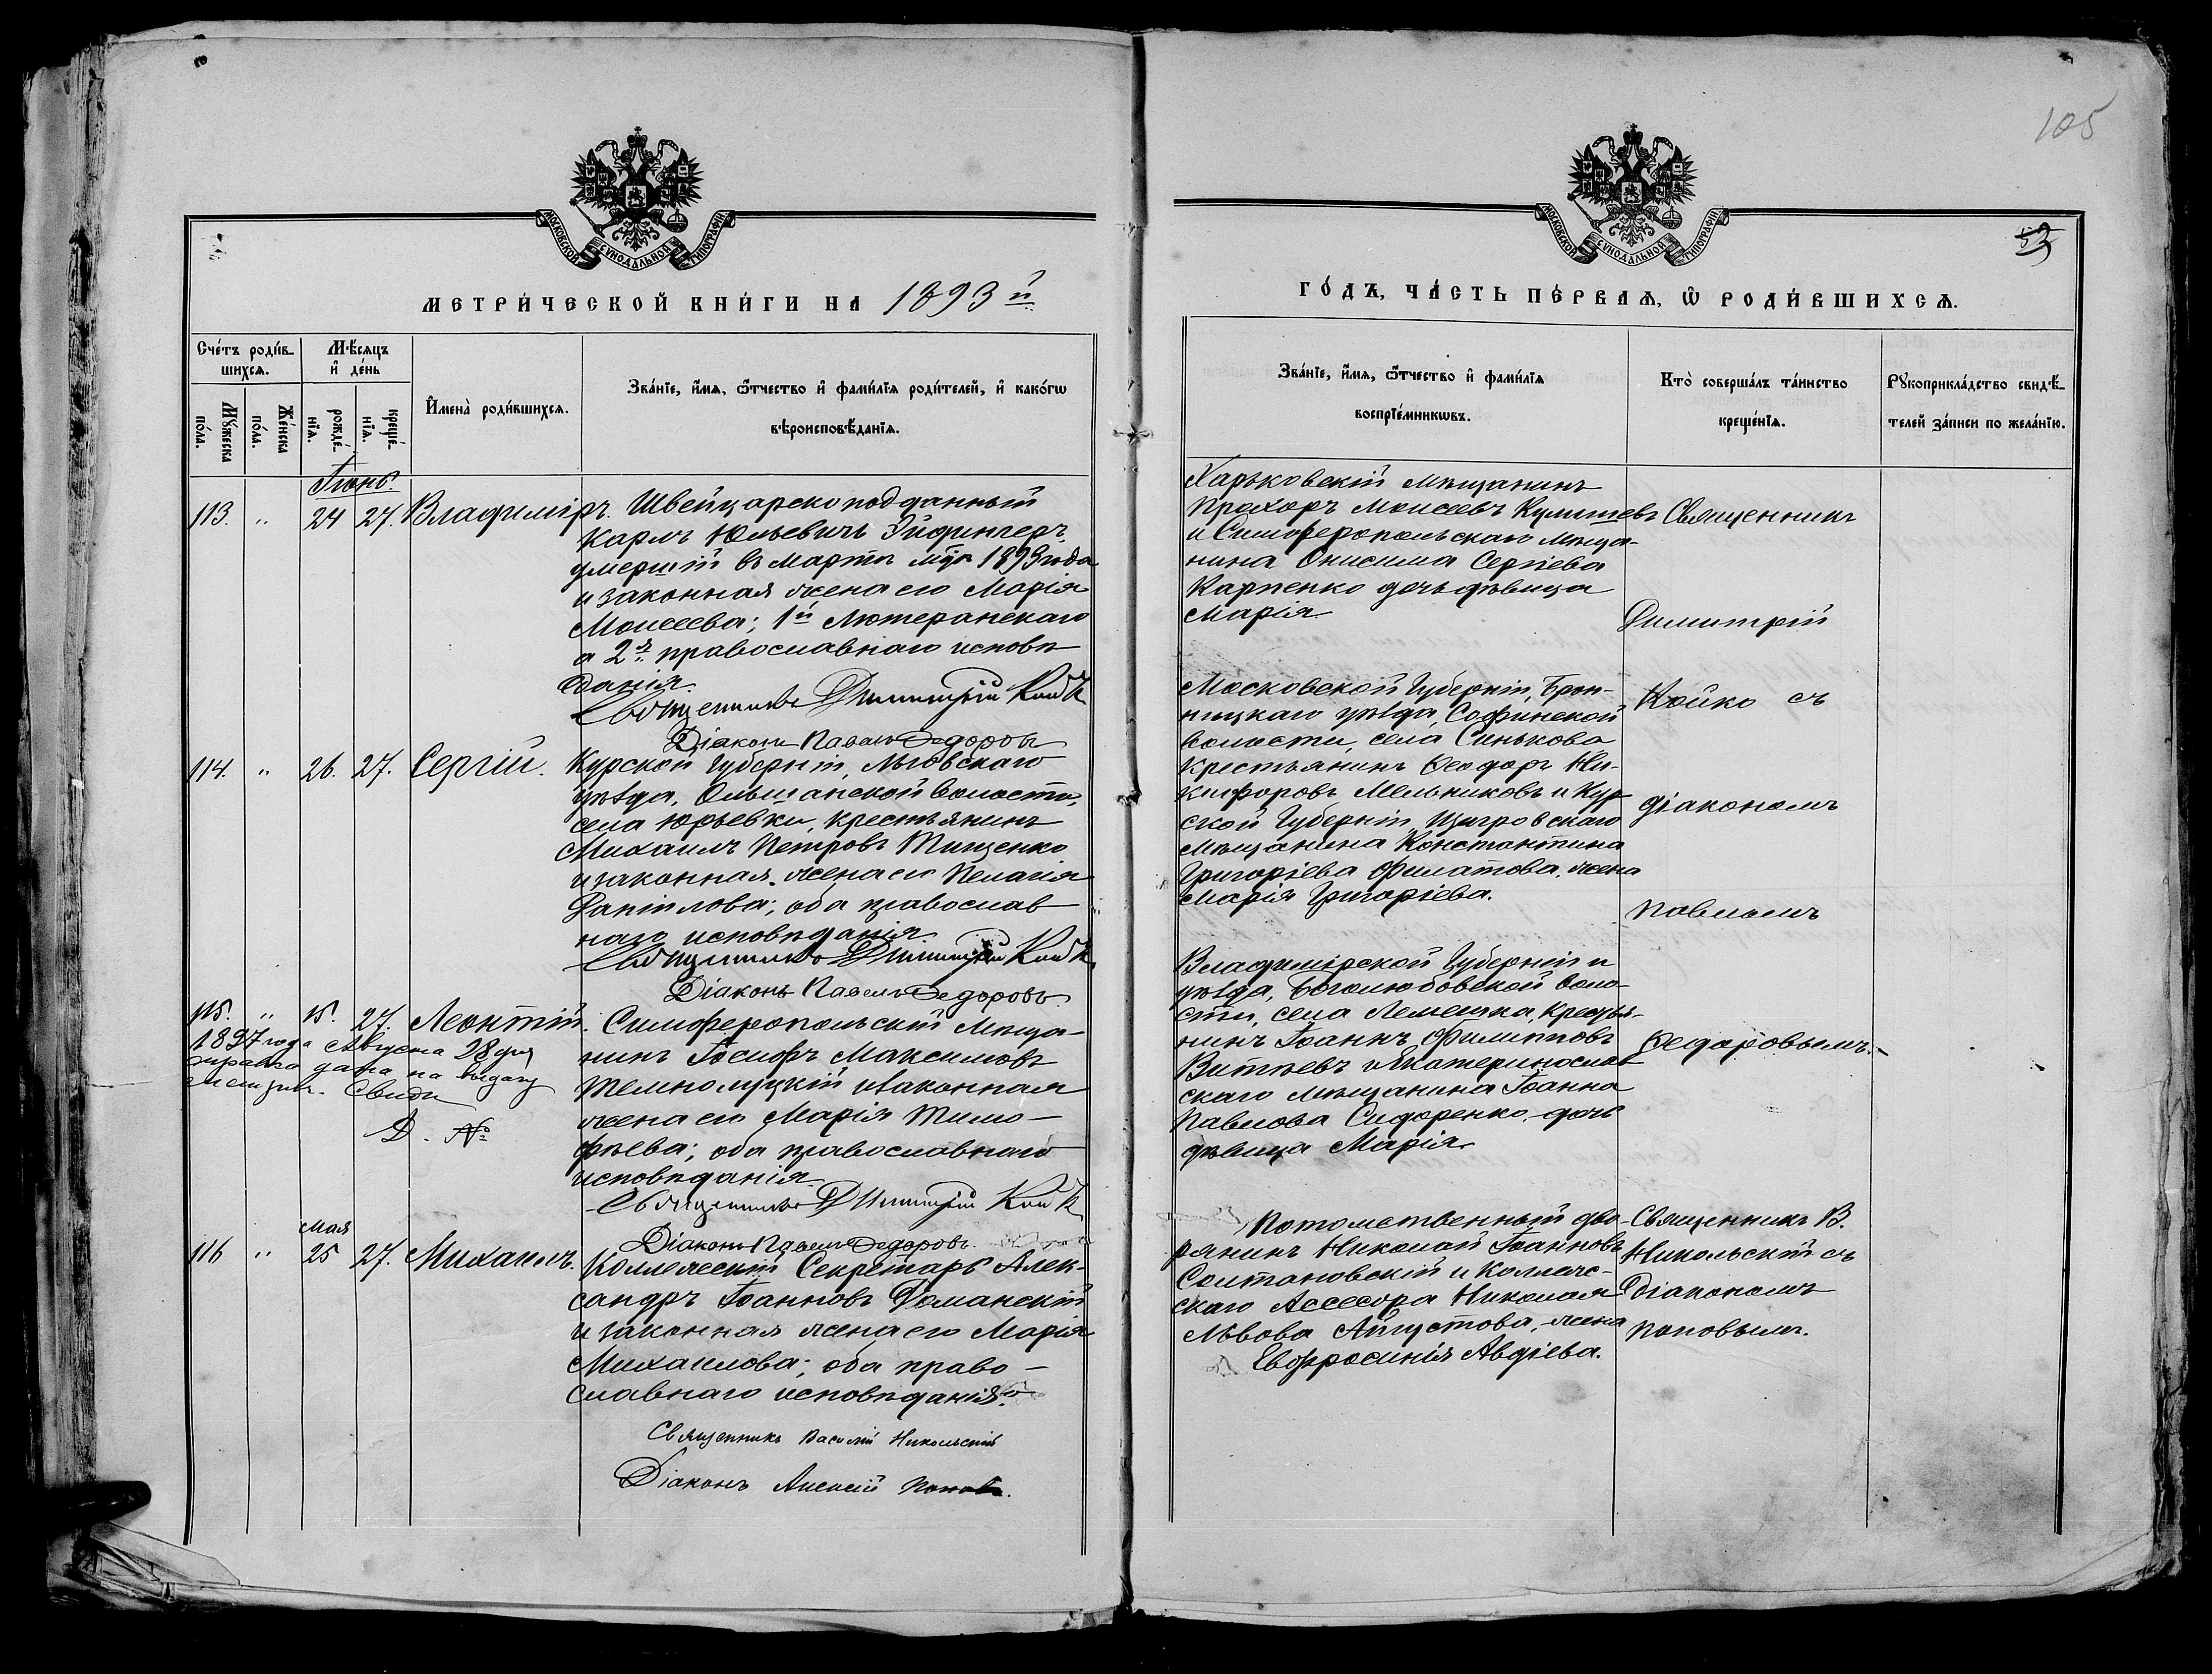 105
53
МОСКОВСКОЙ СѴНОДАЛЬНОЙ ТИПОГРАФІИ
МОСКОВСКОЙ СѴНОДАЛЬНОЙ ТИПОГРАФІИ
МЕТРИ́ЧЕСКОЙ КНИ́ГИ НА 1893й
ГО́ДЪ, ЧА́СТЬ ПЕ́РВАѦ, Ѽ РОДИ́ВШИХСѦ.
Сче́тъ роди́в-
шихсѧ.
Мꙋ́жеска
по́ла.
Же́нска
по́ла.
Мѣ́сѧцъ
и҆ де́нь
рожде́-
нїѧ.
креще́-
нїѧ.
И҆мена̀ роди́вшихсѧ.
Зва́нїе, и҆́мѧ, ѻ҆́тчество и҆ фами́лїѧ роди́телей, и҆ како́гѡ
вѣроисповѣ́данїѧ.
Зва́нїе, и҆́мѧ, ѻ҆́тчество и҆ фами́лїѧ
воспрїе́мникѡвъ.
Кто̀ соверша́лъ та́инство
креще́нїѧ.
Рꙋкоприкла́дство свидѣ́-
телей за́писи по жела́нїю.
Іюнь.
113. " 24 27. Владиміръ.
Швейцарскоподданный
Карлъ Юльевичъ Эйфингеръ,
умершій въ Мартѣ м-цѣ 1893 года
и законная жена его Марія
Моисеева; 1й Лютеранскаго
а 2я православнаго исповѣ
данія.
Священникъ Димитрій Койко
Діаконъ Павелъ Федоровъ
Харьковскій Мѣщанинъ
Прохоръ Моисеевъ Кулишевъ
и Симферопольскаго Мѣща-
нина Онисима Сергіева
Карпенко дочь дѣвица
Марія.
Священникъ
Димитрій
Койко съ
діакономъ
Павломъ
Федоровымъ.
114. " 26. 27. Сергій.
Курской Губерніи, Льговскаго
уѣзда, Ольшанской волости,
села Юрьевки, крестьянинъ
Михаилъ Петровъ Тищенко
и законная жена его Пелагія
Даніилова; оба православ
наго исповѣданія.
Священникъ Димитрій Койко
Діаконъ Павелъ Федоровъ
Московской Губерніи, Брон-
ницкаго уѣзда, Софинской
волости, села Синькова
крестьянинъ Ѳеодоръ Ни-
кифоровъ Мельниковъ и Кур
ской Губерніи Щигровскаго
мѣщанина Константина
Григоріева Филатова, жена
Марія Григоріева.
115. " 15. 27. Леонтій.
1897 года Августа 28 дня
справка дана на выдачу
метрич. Свидѣ
Д. №
Симферопольскій Мѣща-
нинъ Іосифъ Максимовъ
Темнолуцкій и законная
жена его Марія Тимо-
фѣева; оба православнаго
исповѣданія.
Священникъ Димитрій Койко
Діаконъ Павелъ Федоровъ.
Владимірской Губерніи и
уѣзда, Боголюбовской воло-
сти, села Лемешка, крестья-
нинъ Іоаннъ Филипповъ
Витѣевъ и Екатеринослав
скаго мѣщанина Іоанна
Павлова Сидоренко, дочь
дѣвица Марія.
Мая
116 " 25 27. Михаилъ.
Коллежскій Секретарь Алек-
сандръ Іоанновъ Романскій
и законная жена его Марія
Михаилова; оба право-
славнаго исповѣданія.
Священникъ Василій Никольскій
Діаконъ Алексій Поповъ.
Потомственный дво-
рянинъ Николай Іоанновъ
Солтановскій и Коллеж-
скаго Асессора Николая
Львова Августова, жена
Евфросинія Авдіева.
Священникъ В.
Никольскій съ
Діакономъ
Поповымъ.